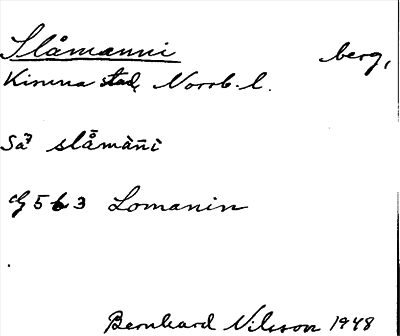 Slåmanni berg,
Kiruna stad, Norrb. l.
Så7 slåmàn̄i
5 3 Lomanin
Bernhard Nilsson 1948